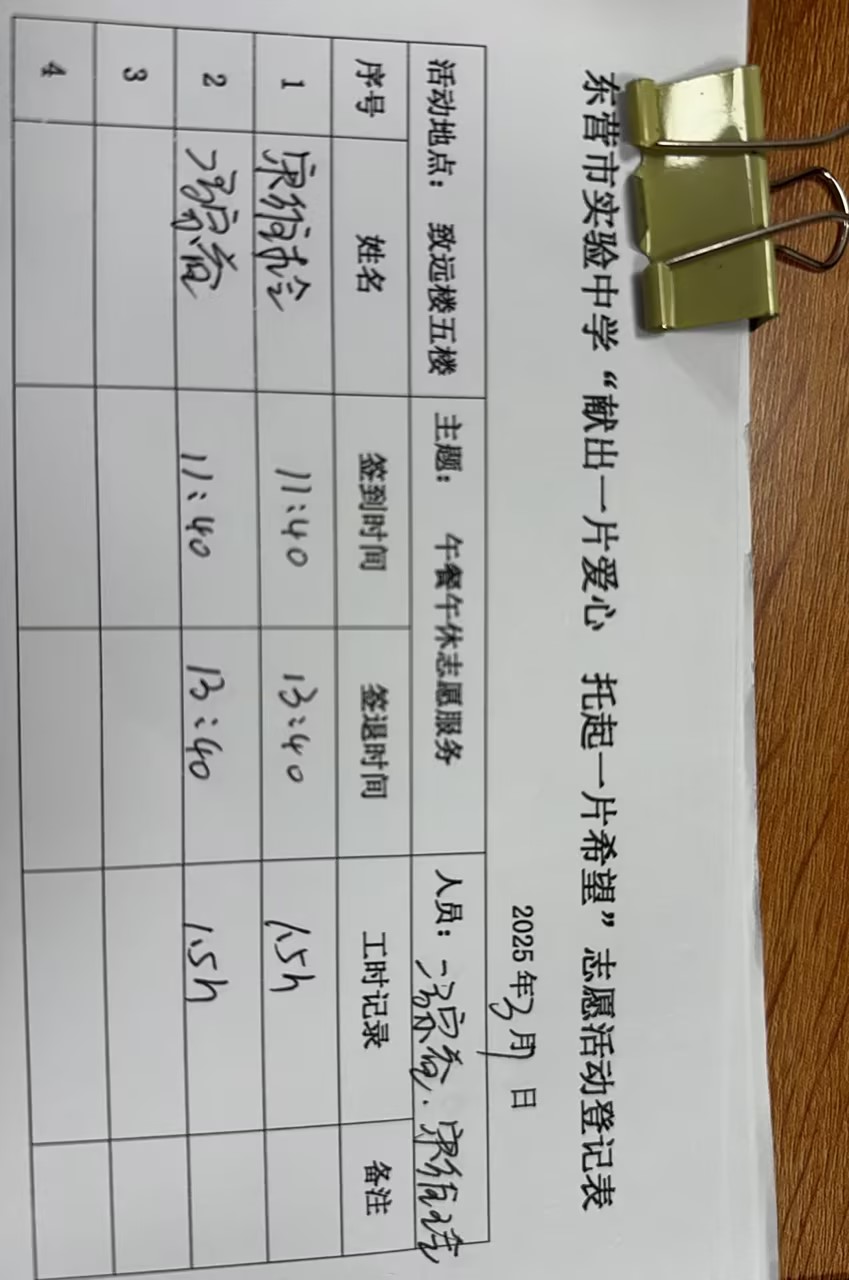 东营市实验中学“献出一片爱心 托起一片希望”志愿活动登记表
2025年3月7日
活动地点: 致远楼五楼 主题: 午餐午休志愿服务 人员:
序号 姓名 签到时间 签退时间 工时记录 备注
1 11:40 13:40 1.5h
2 11:40 13:40 1.5h
3
4